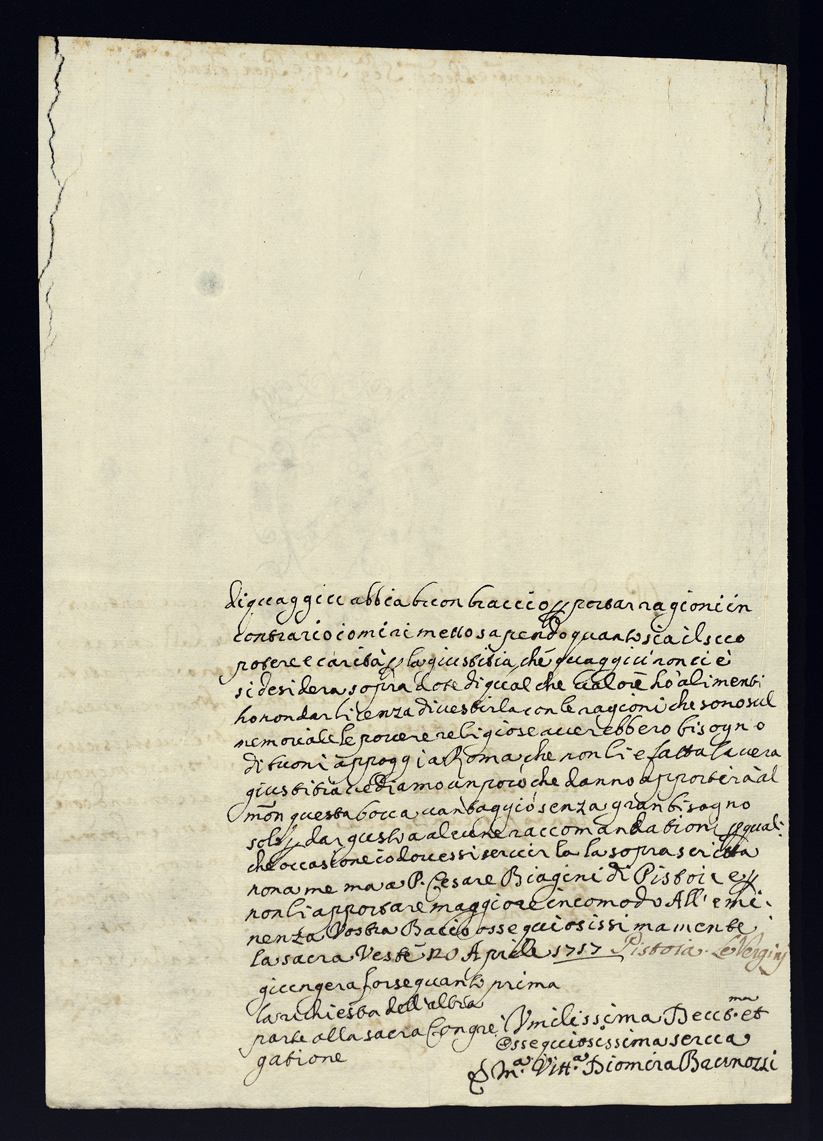 di quaggiu abbia buon braccio p portar ragioni in
contrario io mi rimetto sapendo quanto sia il suo
potere e carità p la giustitia, che quaggiu non ci è
si desidera sopra dote di qual che ho alimenti
ho non dar licenza di vestirla con le ragioni che sono sul
memoriale le povere religiose averebbero bisogno
di buoni appoggi a Roma che non li e fatta la vera
giustitia vediamo un poco che danno apporterà al
mōn questa bocca vantaggio senza gran bisogno
solo p dar gusto a alcune raccomandationi p qual
che occasione io dovessi servirla la soprascritta
non a me ma a P. Cesare Biagini di Pistoie e p
non li apportare maggiore incomodo All' emi-
nenza Vostra Bacio ossequiosissimamente
la sacra Veste 20 Aprile 1717 Pistoia. Le Vergini
giungera forse quanto prima
la richiesta dell'altra
parte alla sacra Congre
gatione
Vmilissima Devot.ma et
Ossequiosissima serva
D. M.a Vitt.a Diomira Bacinozzi